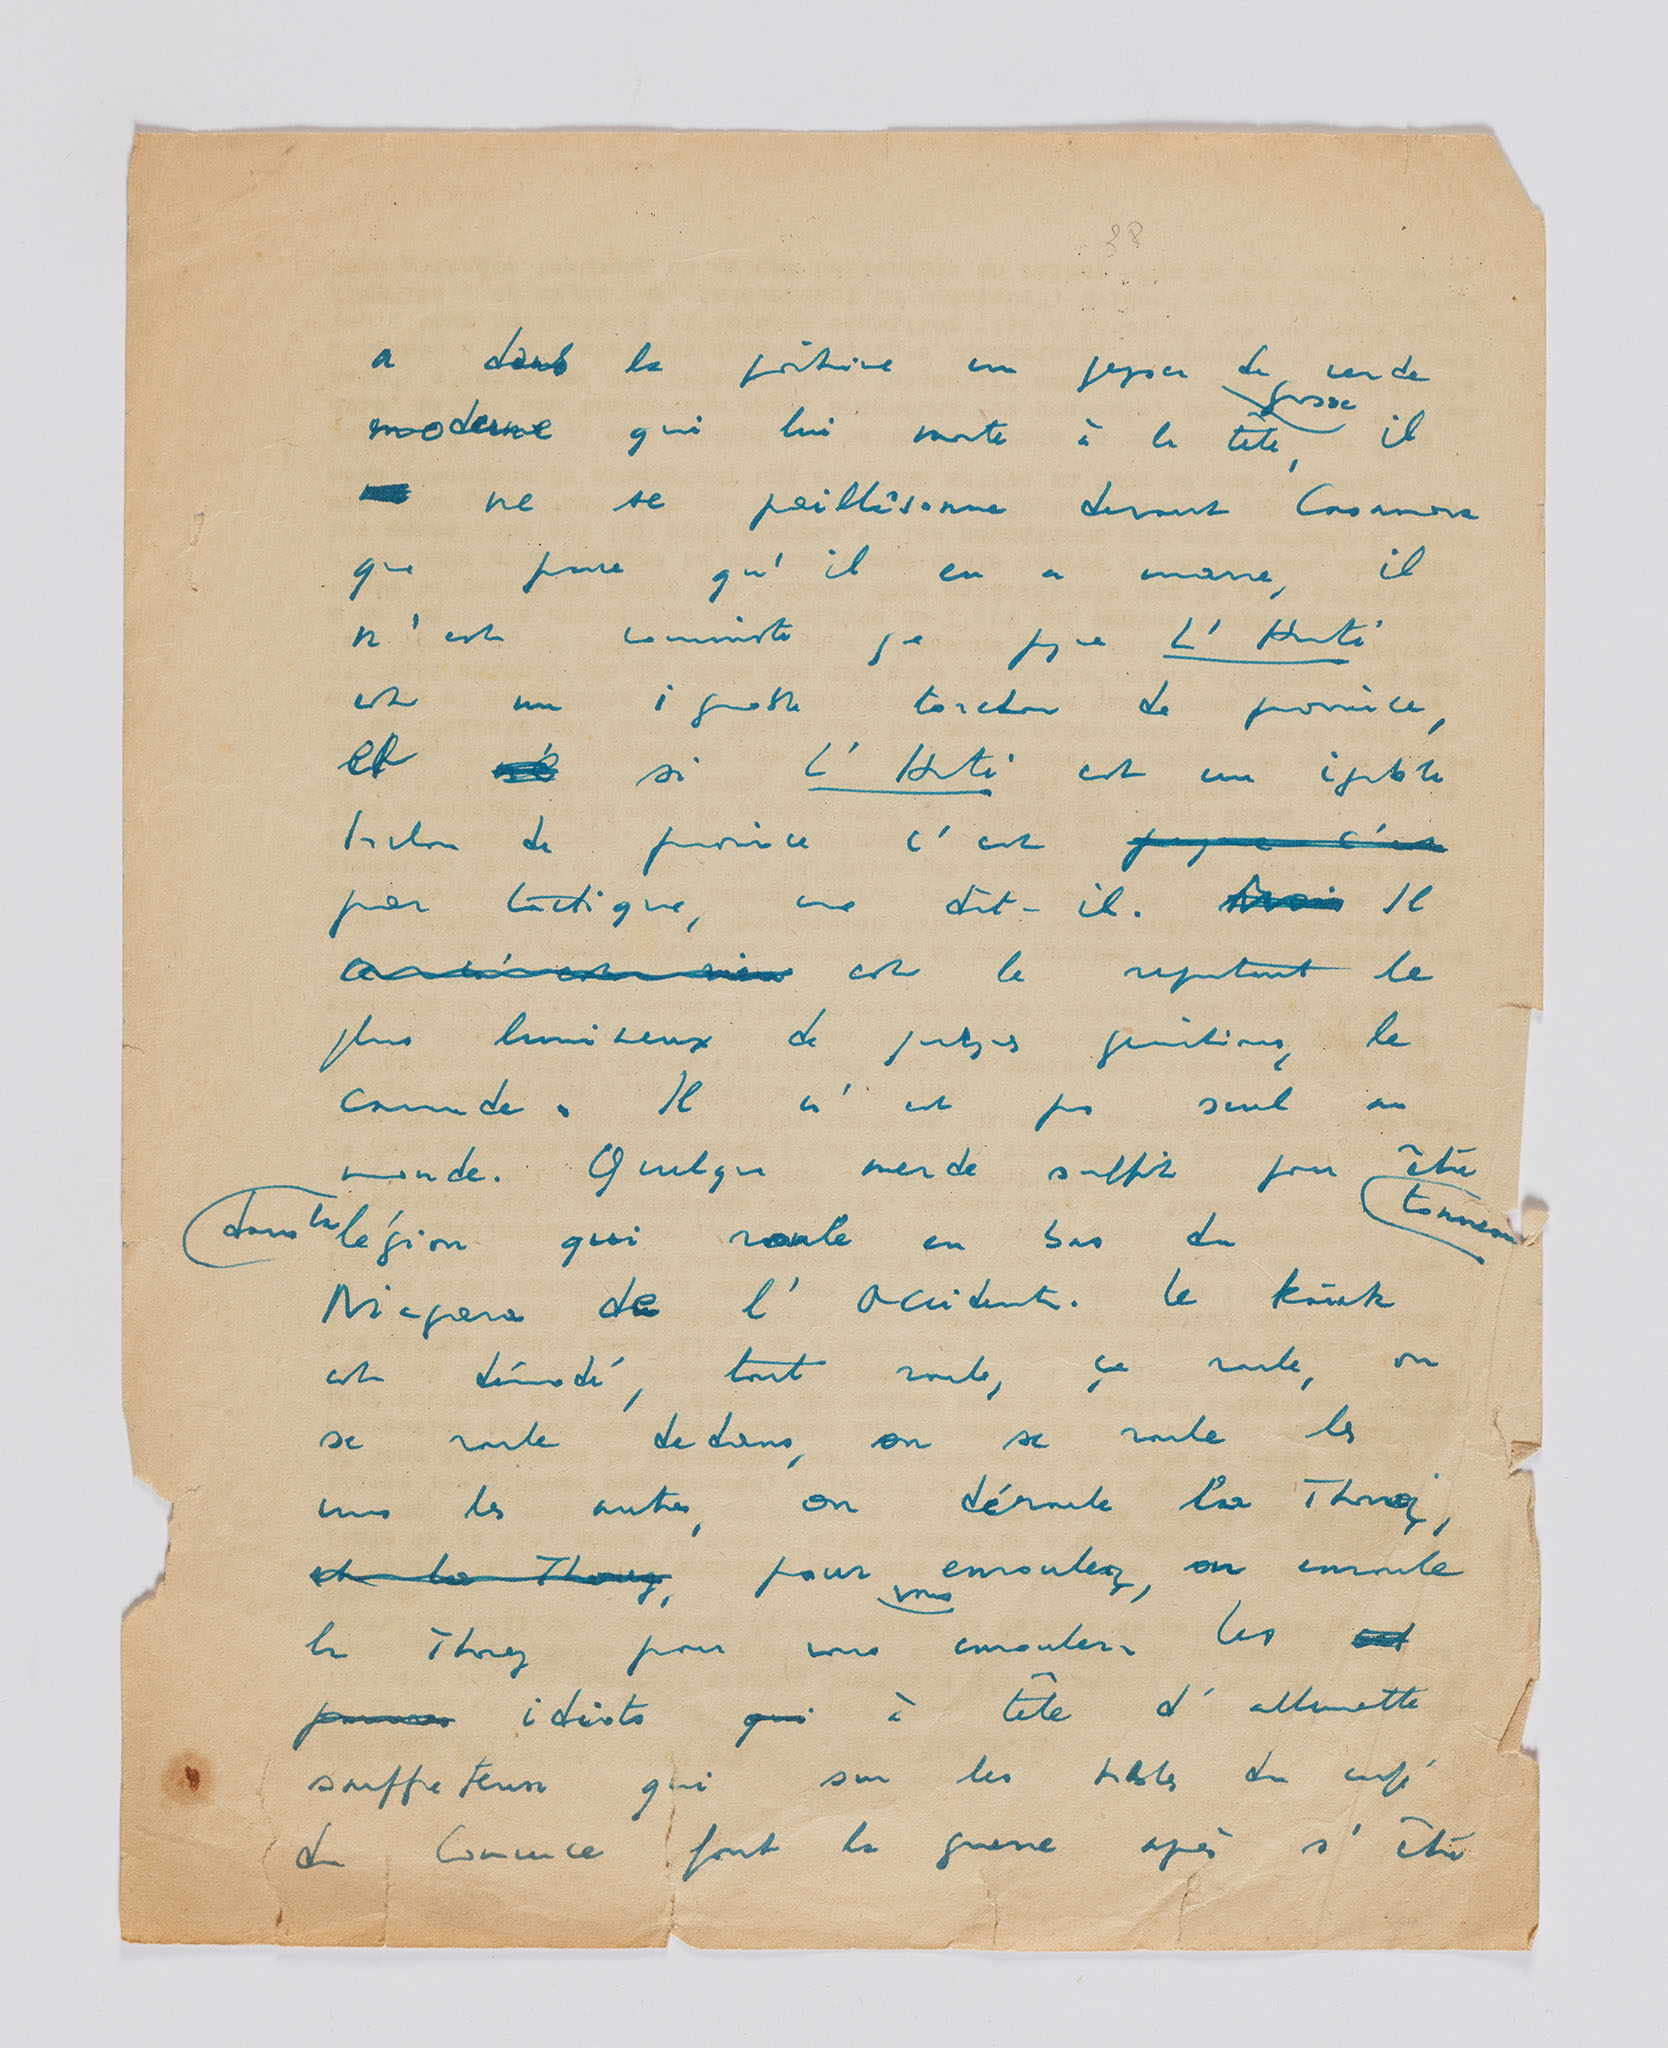 38
a dans la poitrine un geyser de merde
grosse
moderne qui lui monte à la tête, il
ne se paillassonne devant Casanova
que parce qu'il en a marre, il
n'est communiste que parce que L'Huté
est un ignoble torchon de province,
et si L'Huté est un ignoble
torchon de province c'est parce que c'est
par tactique, me dit-il. Mais Il
est le représentant le
plus lumineux de jeunes générations, le
camarade. Il n'est pas seul au
monde. Quelque merde suffit pour être
dans la légion qui roule en bas du tonneau
Niagara de l'Occident. Le kayak
est démodé, tout roule, ça roule, on
se roule dedans, on se roule les
uns les autres, on déroule la Thorez,
et la Thorez, pour enrouler, on enroule
vous
la Thorez pour vous enrouler. Les
idiots qui à tête d'allumette
souffreteux qui sur les tables du café
du Commerce font la guerre après s'être